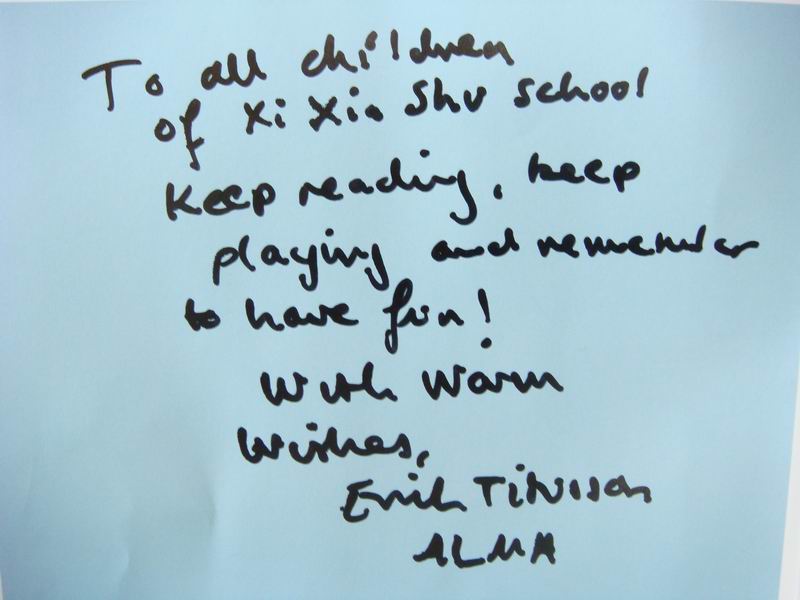 To all children
of Xi Xia Shu School
Keep reading, keep
playing and remember
to have fun!
With Warm
Wishes,
Erik Titusson
ALMA